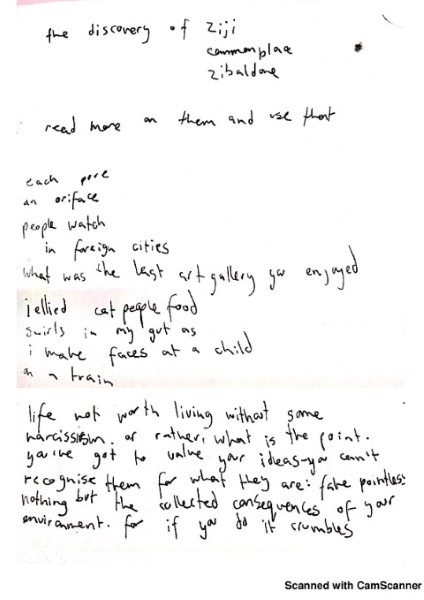 the discovery of ziji
commonplace
zibaldone
read more on them and use that
each pore
an oriface
people watch
in foreign cities
what was the last art gallery you enjoyed
jellied cat people food
swirls in my gut as
i make faces at a child
on a train
life not worth living without some
narcissism. or rather, what is the point.
you've got to value your ideas-you can't
recognise them for what they are: fake pointless
nothing but the collected consequences of your
environment. for if you do it crumbles
Scanned with CamScanner